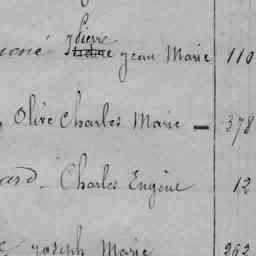 Pierre
Jean Marie 110
Olive Charles Marie - 378
Charles Eugène 12
Joseph Marie 262